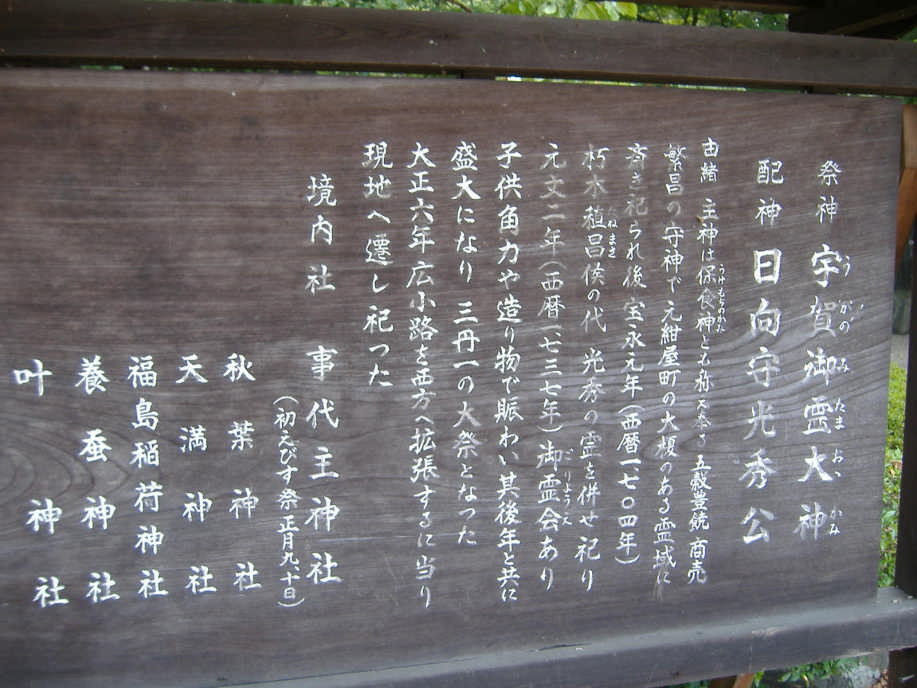 祭神 宇賀御霊大神
うがのみたまおゝかみ
配神 日向守光秀公
由緒 主神は保食神とも称え奉る 五穀豊饒 商売
うけもちのかみ
繁昌の守神で元紺屋町の大榎のある霊域に
斉き祀られ後宝永元年(西暦一、七〇四年)
朽木稙昌侯の代 光秀の霊を併せ祀り
たねまさ
元文二年(西暦一、七三七年)御霊会あり
ごりょうえ
子供角力や造り物で賑わい其後年と共に
盛大になり 三丹一の大祭となった
大正六年広小路を西方へ拡張するに当り
現地へ遷し祀った
境内社 事代主神社
(初えびす祭正月九、十日)
秋葉神社
天満神社
福島稲荷神社
養蚕神社
叶神社